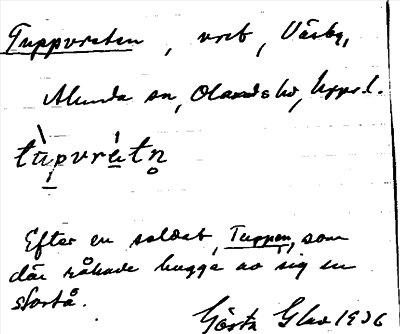 Tuppvreten, vret, Väsby,
Alunda sn, Olands hd, Uppl.
tùpvrétn̥
Efter en soldat, Tuppen, som
där råkade hugga av sig en
stortå.
Gösta 1936